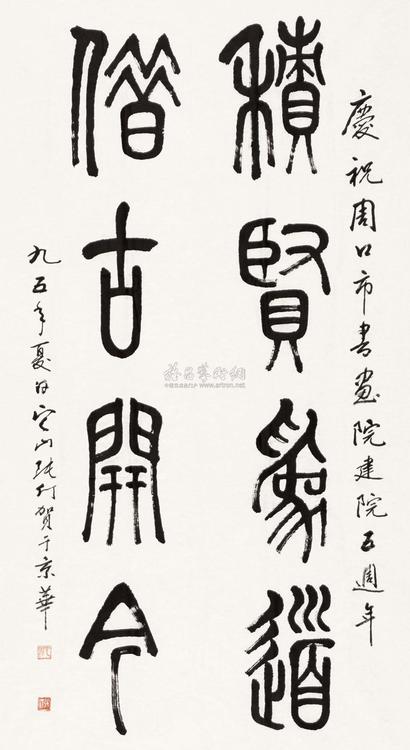 慶祝周口市書畫院建院五週年
積賢爲道
借古開今
九五年夏日它山張仃賀于京華
雅昌藝術網
www.artron.net